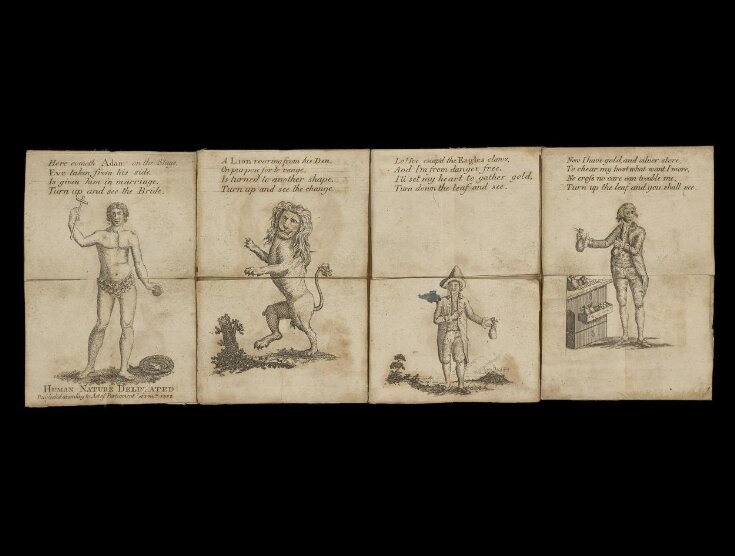 Here cometh Adam on the Stage,
Eve taken from his side.
Is given him in marriage.
Turn up and see the Bride.
HUMAN NATURE DELIN ATED
Published according to Act of Parliament
A Lion roaring from his Den,
On purpose for to range.
Is turned to another shape.
Turn up and see the change.
Lo I've escap'd the Eagles claws,
And I'm from danger free.
I'll set my heart to gather gold,
Turn down the leaf and see.
Now I have gold, and silver store,
To chear my heart what want I more,
No cross no care can trouble me,
Turn up the leaf and you shall see.